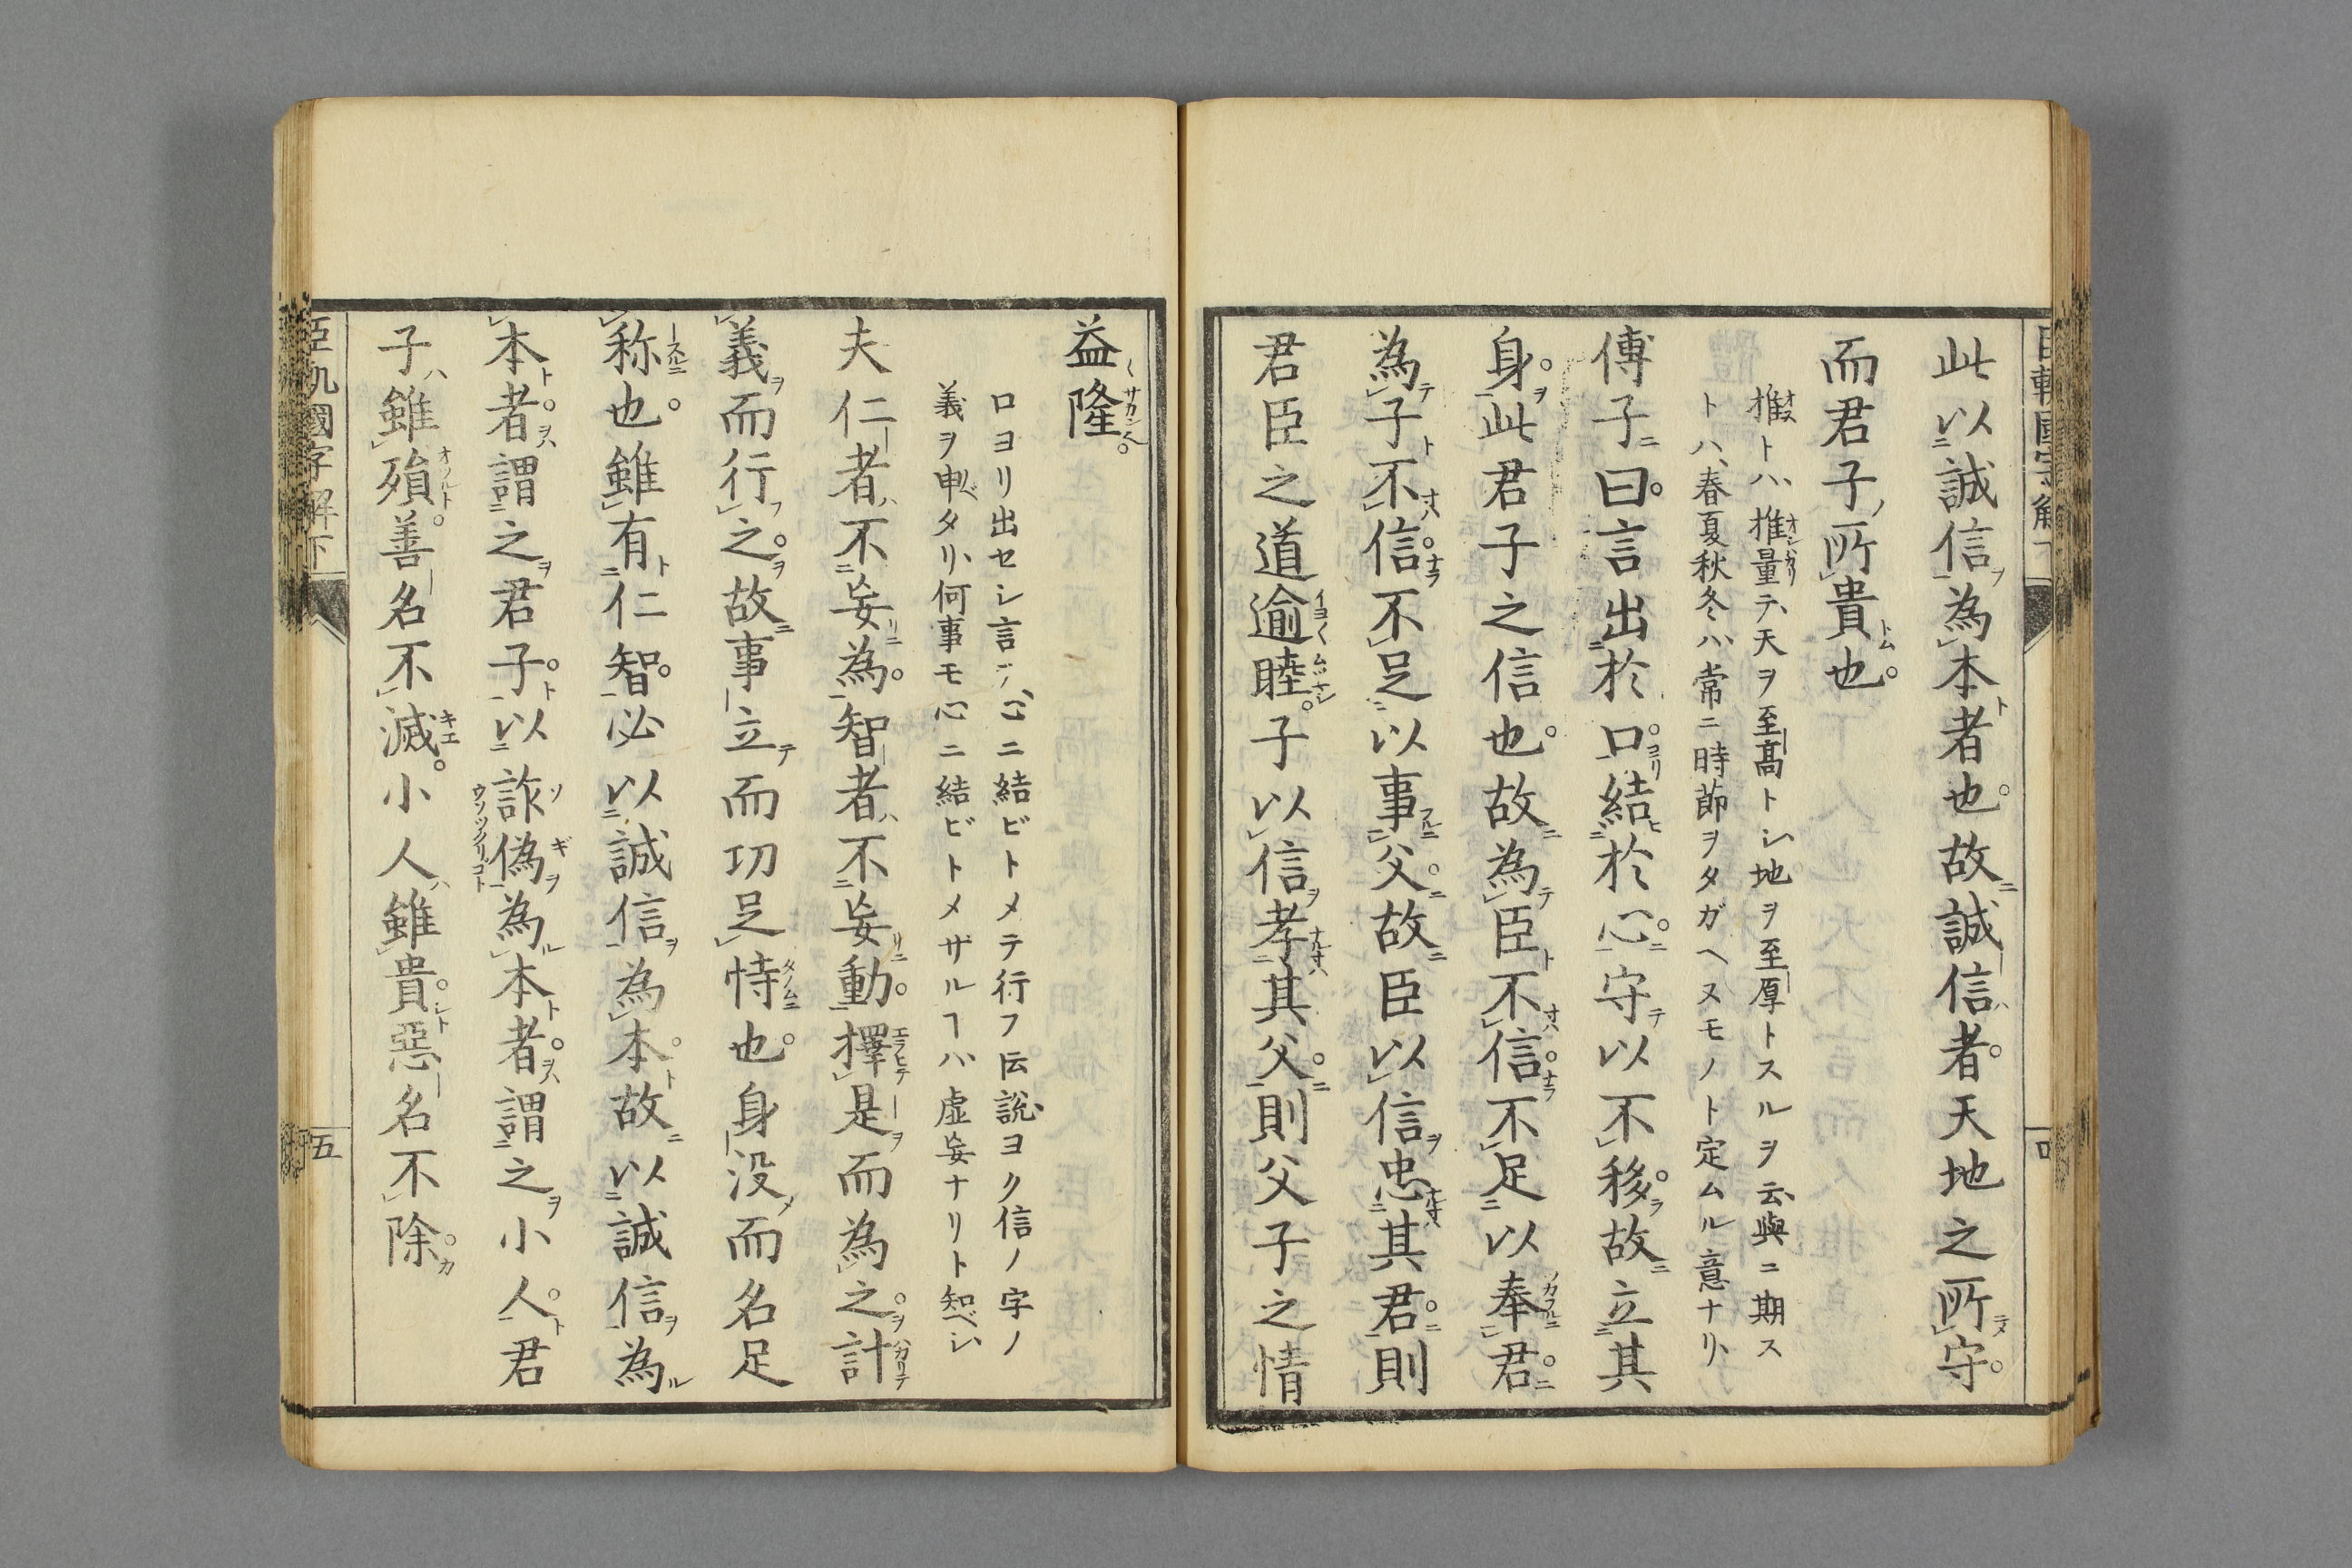 臣軌國字解下
此以誠信為本者也故誠信者天地之所守
而君子所貴也
推トハ、推量テ、天ヲ至高トシ、地ヲ至厚トスルヲ云、與ニ期ス
トハ、春夏秋冬ハ、常ニ時節ヲタガヘヌモノト定ムル意ナリ、
傅子曰言出於口結於心守以不移故立其
身此君子之信也故為臣不信不足以奉君
為子不信不足以事父故臣以信忠其君則
君臣之道逾睦子以信孝其父則父子之情
益隆
口ヨリ出セシ言ヲ、心ニ結ビトメテ行フ伝説ヨク信ノ字ノ
義ヲ申ベタリ、何事モ心ニ結ビトメザルヿハ虚妄ナリト知ベシ、
夫仁者不妄為智者不妄動擇是而為之計
義而行之故事立而功足恃也身没而名足
称也雖有仁智必以誠信為本故以誠信為
本者謂之君子以詐偽為本者謂之小人君
子雖殞善名不滅小人雖貴惡名不除
臣軌國字解下
五